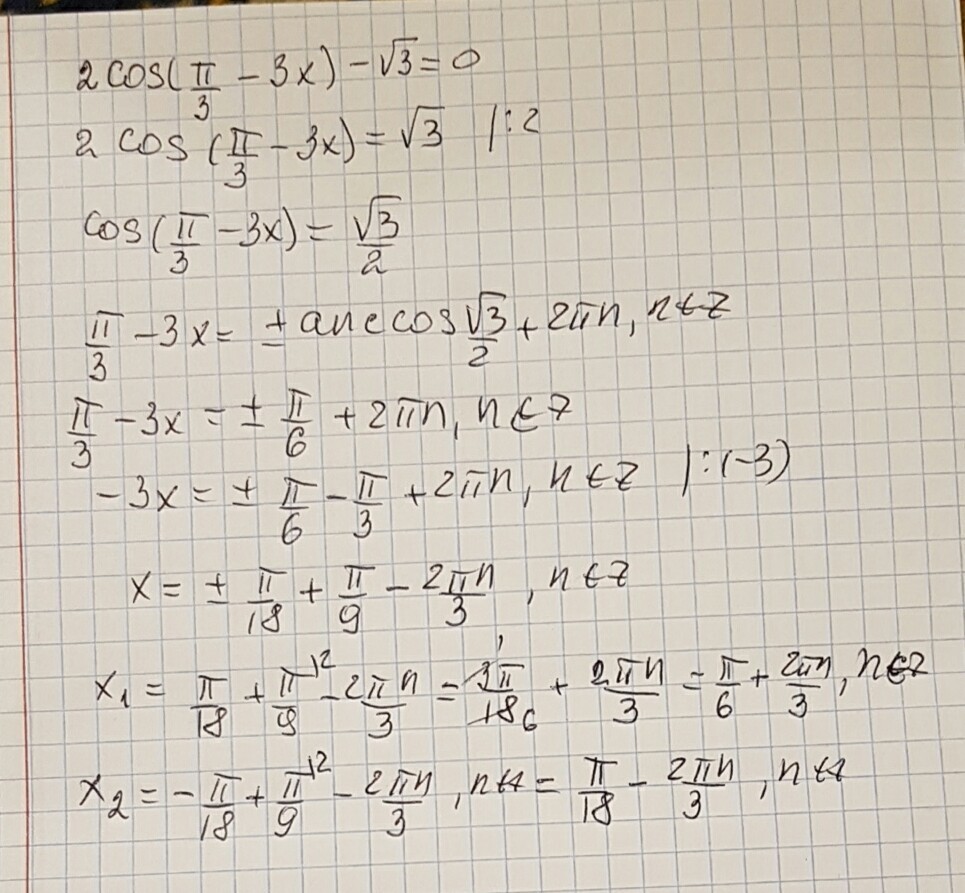 2cos(π/3 - 3x) - √3 = 0
2 cos (π/3 - 3x) = √3 |:2
cos(π/3 - 3x) = √3/2
π/3 - 3x = ± arccos √3/2 + 2πn, n∈Z
π/3 - 3x = ± π/6 + 2πn, n∈Z
-3x = ± π/6 - π/3 + 2πn, n∈Z |:(-3)
x = ± π/18 + π/9 - 2πn/3, n∈Z
x₁ = π/18 + π/9 ⁽² - 2πn/3 = 3π/18 ¹ ₆ + 2πn/3 = π/6 + 2πn/3, n∈Z
x₂ = -π/18 + π/9 ⁽² - 2πn/3, n∈Z = π/18 - 2πn/3, n∈Z